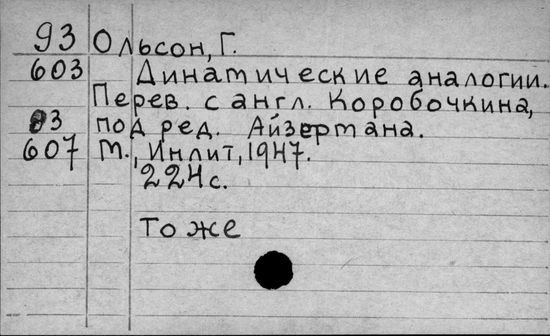 93 Ольсон, Г.
603 Динатические аналогии.
Перев. с англ. Коробочкина,
93 под ред. Айзертана.
607 М., Инлит, 1947.
224 с.
То же